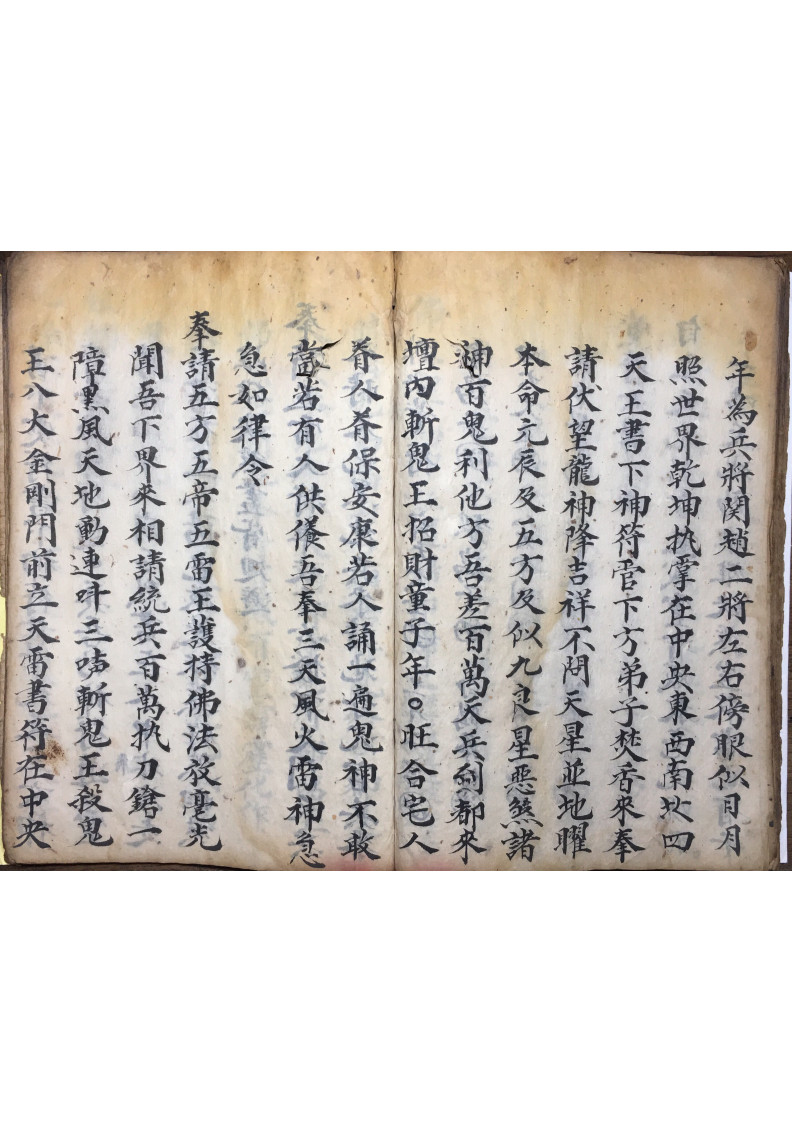 年為兵將関趙二將左右傍眼似日月
照世界乾坤执掌在中央東西南北四
天王書下神符官下方弟子焚香來奉
請伏望龍神降吉祥不問天星並地曜
本命元辰及五方及似九良星恶煞諸
神百鬼利他方吾差百萬天兵到都來
壇内斬鬼王招財童子年〇旺合宅人
眷人眷保安康若人誦一遍鬼神不敢
當若有人供養吾奉三天風火雷神急
急如律令
奉請五方五帝五雷王護持佛法放毫光
聞吾下界來相請統兵百萬执刀鎗一
障黑風天地動連呌三声斬鬼王殺鬼
王八大金剛門前立天雷書符在中央